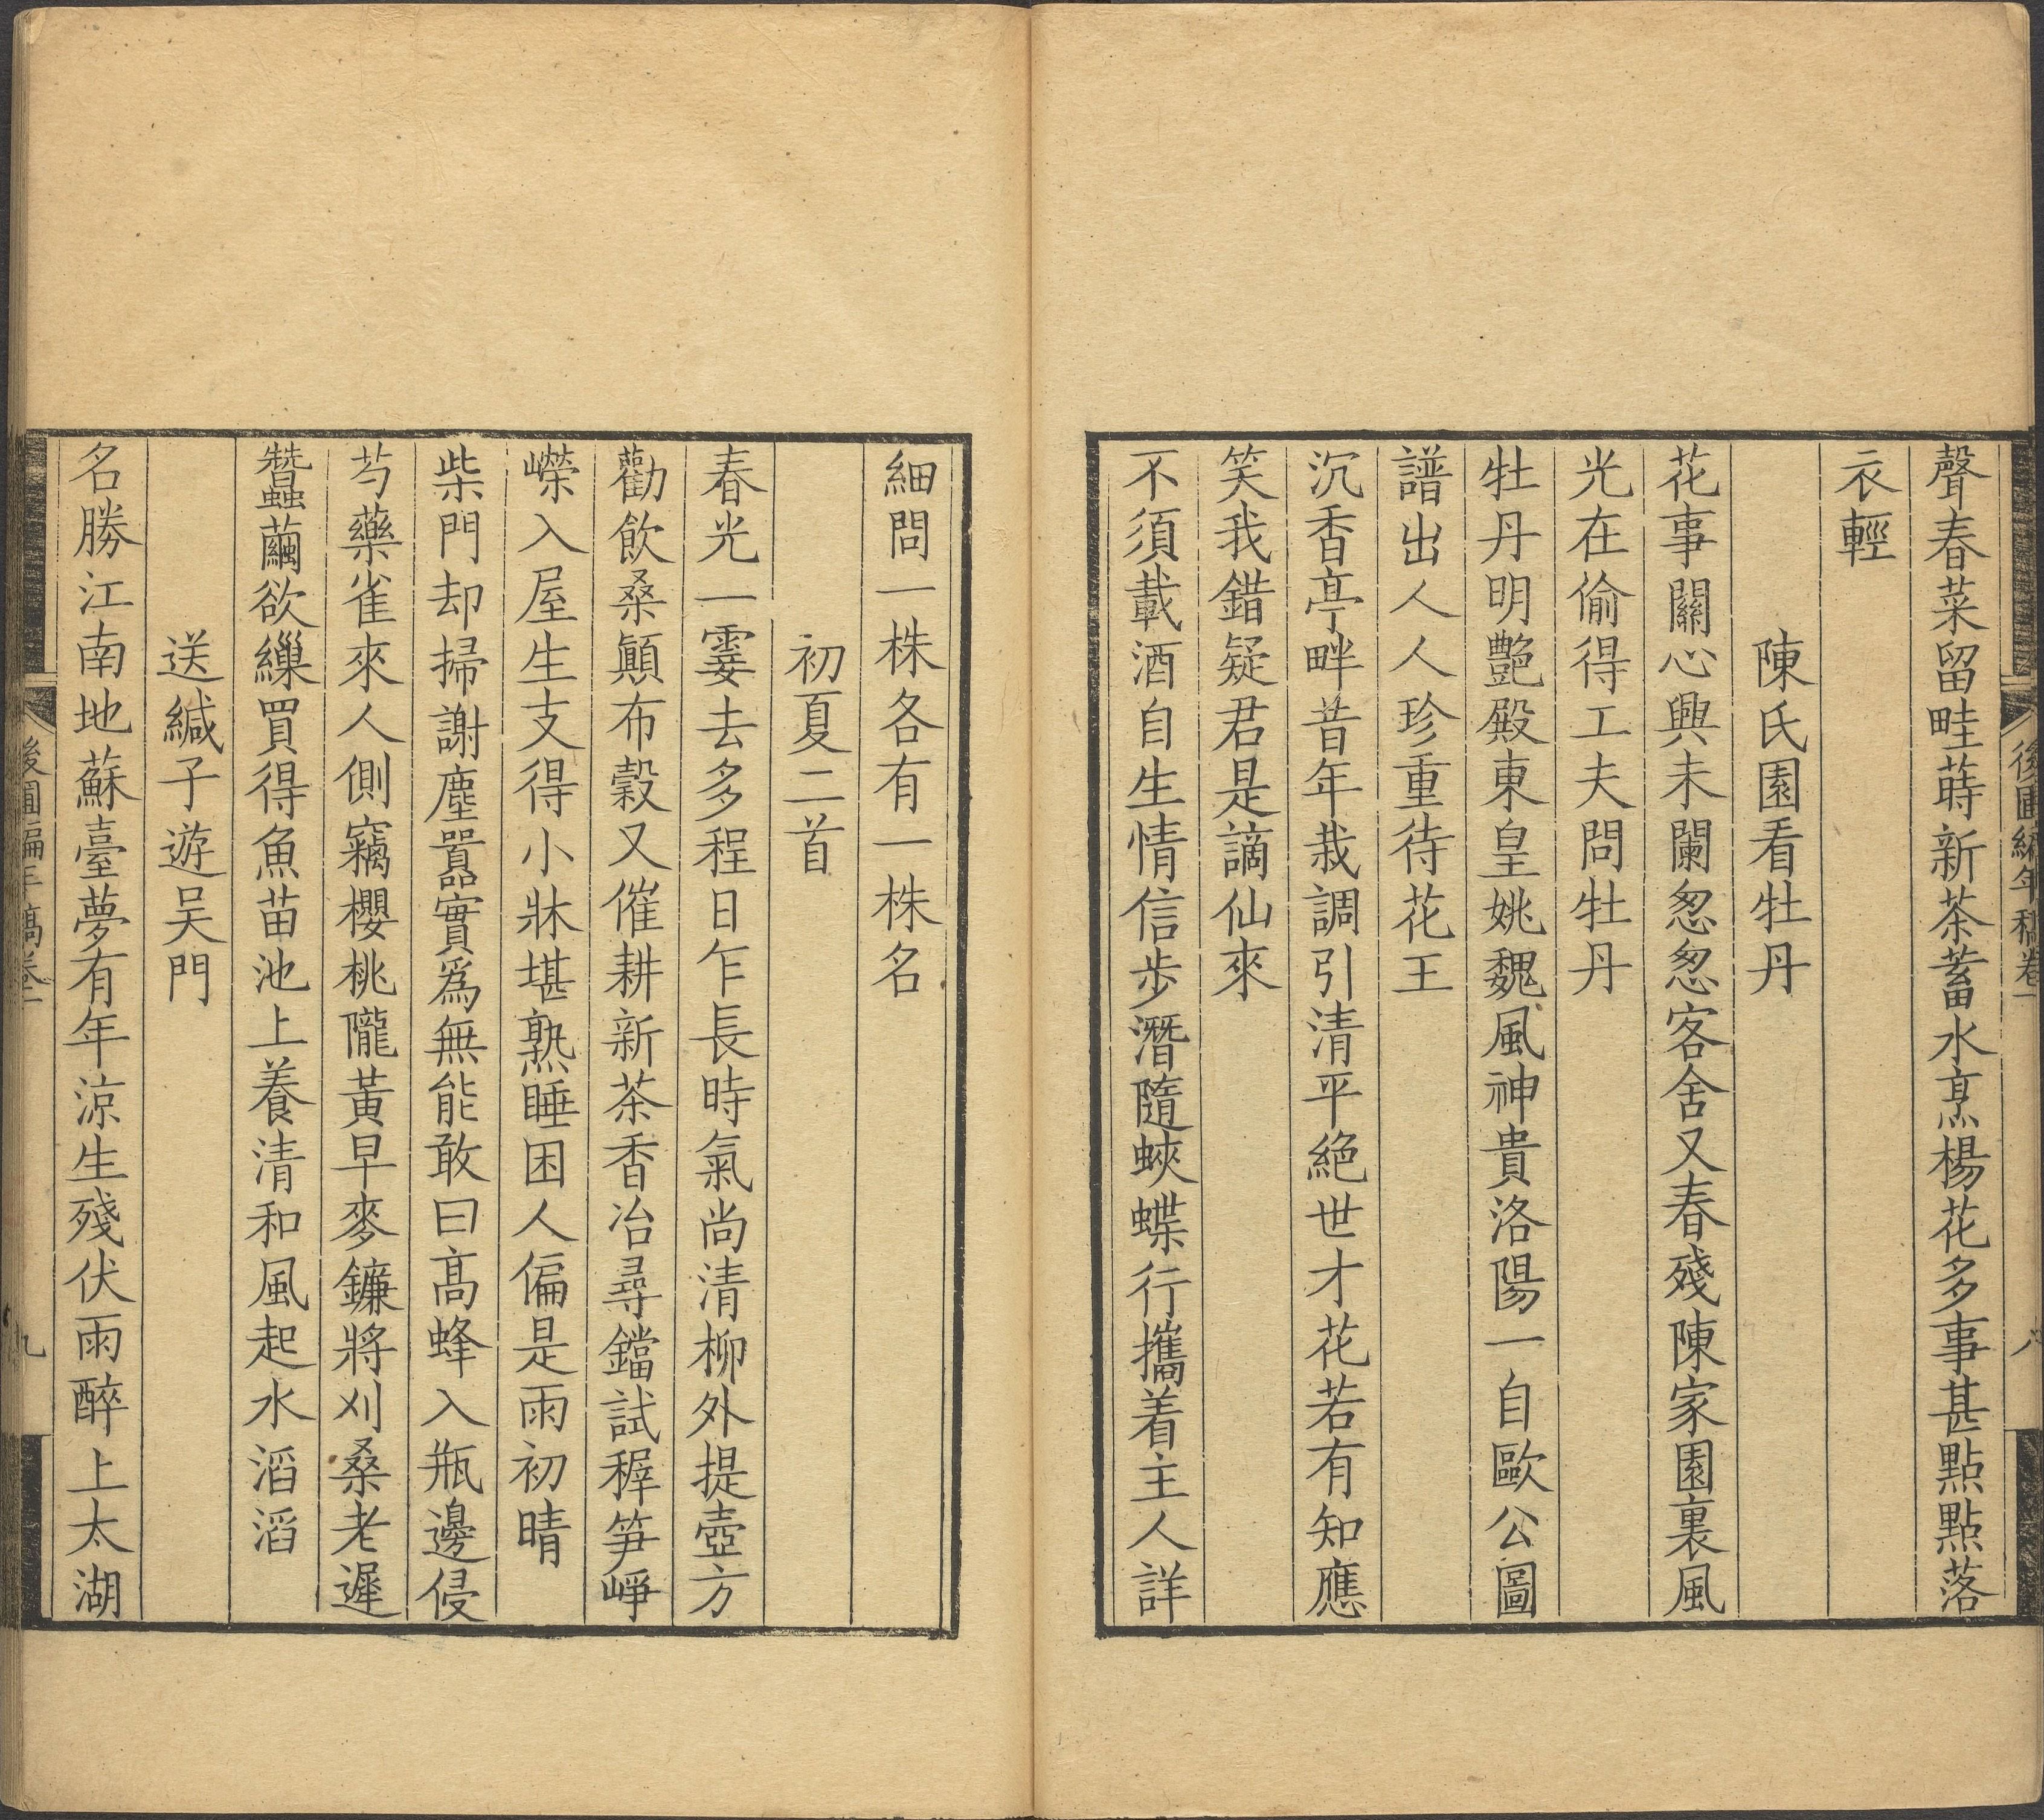 聲春菜留畦蒔新茶蓄水烹楊花多事甚點點落
衣輕
陳氏園看牡丹
花事關心興未闌怱怱客舍又春殘陳家園裏風
光在偷得工夫問牡丹
牡丹明艷殿東皇姚魏風神貴洛陽一自歐公圖
譜出人人珍重待花王
沉香亭畔昔年栽調引清平絕世才花若有知應
笑我錯疑君是謫仙來
不須載酒自生情信步潛隨蛺蝶行攜着主人詳
後圃編年稿卷一
八
細問一株各有一株名
初夏二首
春光一霎去多程日乍長時氣尚清柳外提壺方
勸飲桑顚布穀又催耕新茶香冶尋鐺試稺笋崢
嶸入屋生支得小牀堪熟睡困人偏是雨初晴
柴門却掃謝塵囂實爲無能敢曰高蜂入瓶邊侵
芍藥雀來人側竊櫻桃隴黃早麥鐮將刈桑老遲
蠶繭欲繅買得魚苗池上養清和風起水滔滔
送緘子遊吴門
名勝江南地蘇臺夢有年涼生殘伏雨醉上太湖
後圃編年稿卷一
九